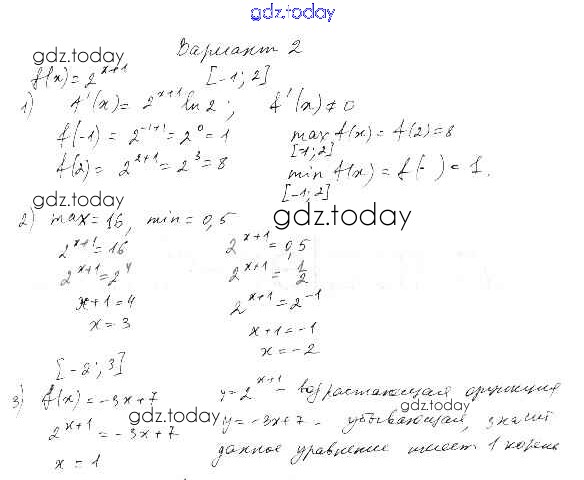 gdz.today
Вариант 2
gdz.today
f(x) = 2^{x+1} [-1; 2]
1) f'(x) = 2^{x+1} ln 2; f'(x) ≠ 0
f(-1) = 2^{-1+1} = 2^0 = 1 max f(x) = f(2) = 8
[-1; 2]
f(2) = 2^{2+1} = 2^3 = 8 min f(x) = f(- ) = 1.
[-1; 2]
gdz.today
2) max = 16, min = 0,5
2^{x+1} = 16 2^{x+1} = 0,5
2^{x+1} = 2^4 2^{x+1} = 1/2
x+1 = 4 2^{x+1} = 2^{-1}
x = 3 x+1 = -1
x = -2
[-2; 3]
3) f(x) = -3x+7 y = 2^{x+1} - возрастающая функция
gdz.today gdz.today
2^{x+1} = -3x+7 y = -3x+7 - убывающая, значит
x = 1 данное уравнение имеет 1 корень